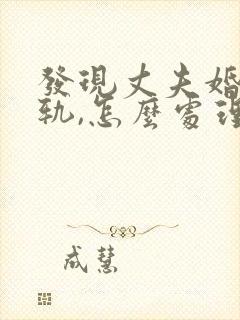 發現丈夫婚
軌,怎麼處理
成慧